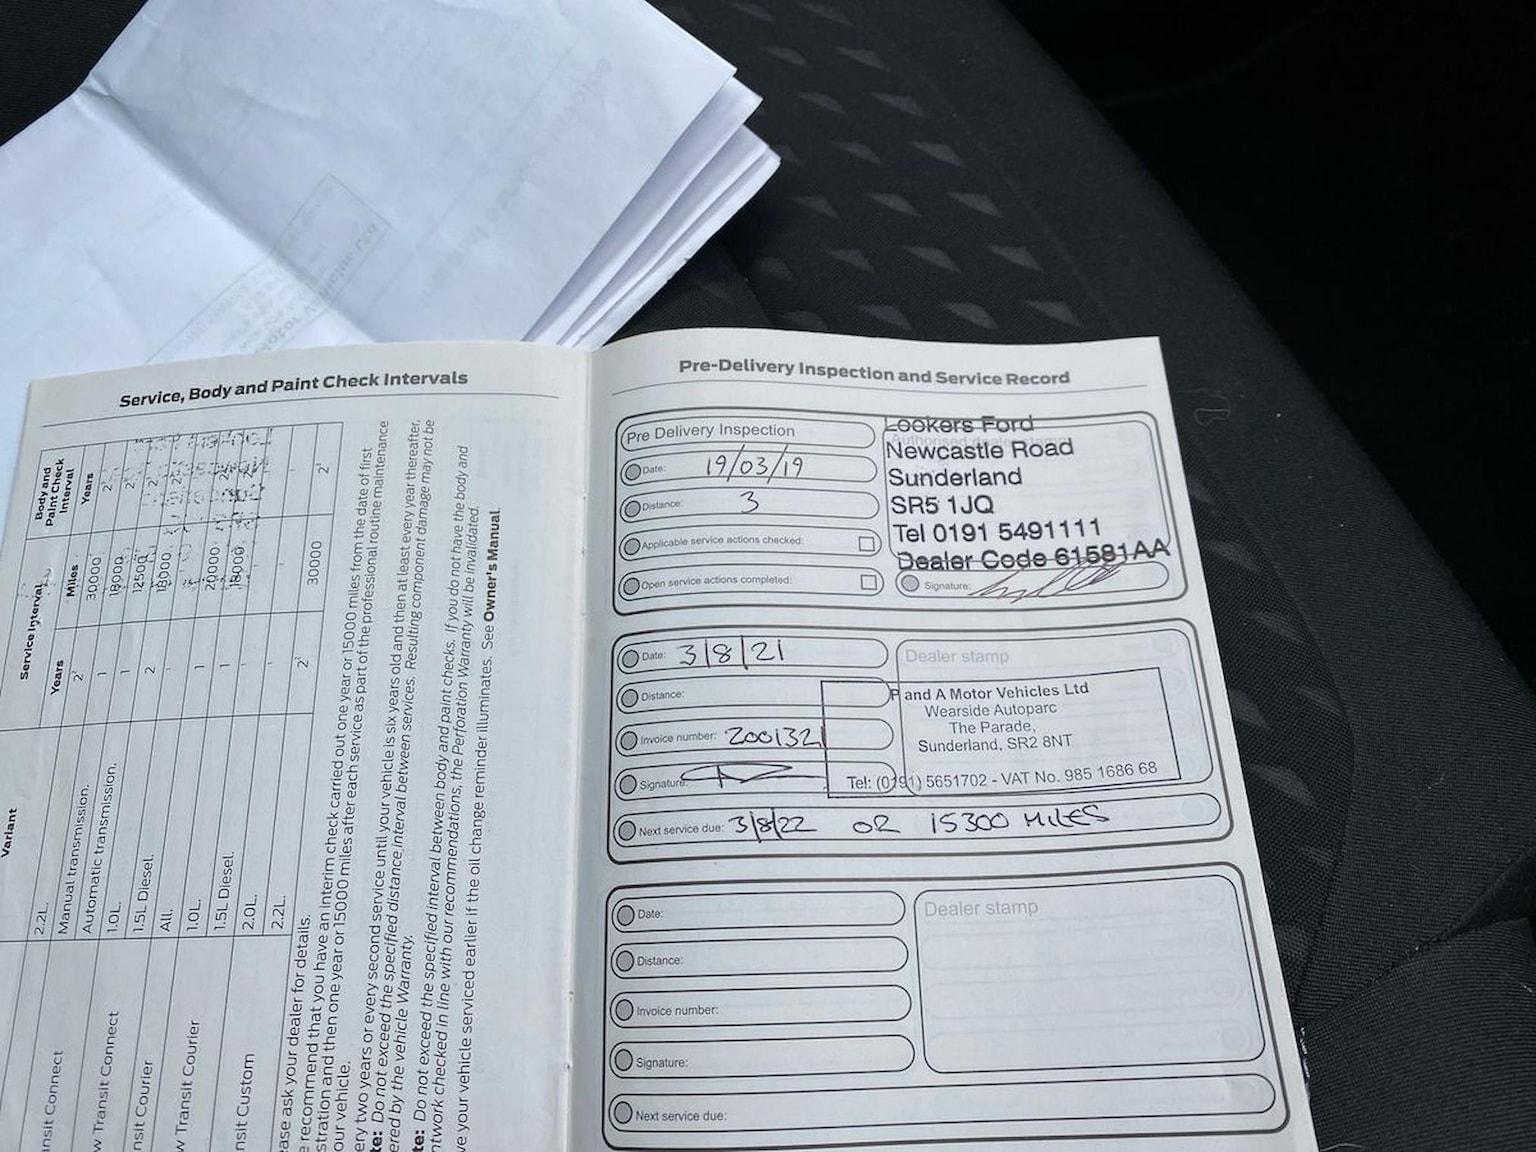 Service, Body and Paint Check Intervals
Variant
Service Interval
Body and
Paint Check
Interval
Years
Miles
Years
2.2L.
Manual transmission.
Automatic transmission.
1.0L.
1.5L Diesel.
All.
1.0L.
1.5L Diesel.
2.0L.
2.2L.
30000
18000
12500
18000
20000
18000
30000
nsit Connect
w Transit Connect
nsit Courier
w Transit Courier
nsit Custom
ease ask your dealer for details.
e recommend that you have an interim check carried out one year or 15000 miles from the date of first
stration and then one year or 15000 miles after each service as part of the professional routine maintenance
our vehicle.
ery two years or every second service until your vehicle is six years old and then at least every year thereafter.
te: Do not exceed the specified distance interval between services. Resulting component damage may not be
ered by the vehicle Warranty.
te: Do not exceed the specified interval between body and paint checks. If you do not have the body and
ntwork checked in line with our recommendations, the Perforation Warranty will be invalidated.
ve your vehicle serviced earlier if the oil change reminder illuminates. See Owner's Manual.
Pre-Delivery Inspection and Service Record
Pre Delivery Inspection
Date: 19/03/19
Distance: 3
Applicable service actions checked:
Open service actions completed:
Authorised dealer stamp
Lookers Ford
Newcastle Road
Sunderland
SR5 1JQ
Tel 0191 5491111
Dealer Code 61581AA
Signature:
Date: 3/8/21
Distance:
Invoice number: 2001321
Signature:
Dealer stamp
P and A Motor Vehicles Ltd
Wearside Autoparc
The Parade,
Sunderland, SR2 8NT
Tel: (0191) 5651702 - VAT No. 985 1686 68
Next service due: 3/8/22 OR 15300 MILES
Date:
Distance:
Invoice number:
Signature:
Next service due:
Dealer stamp